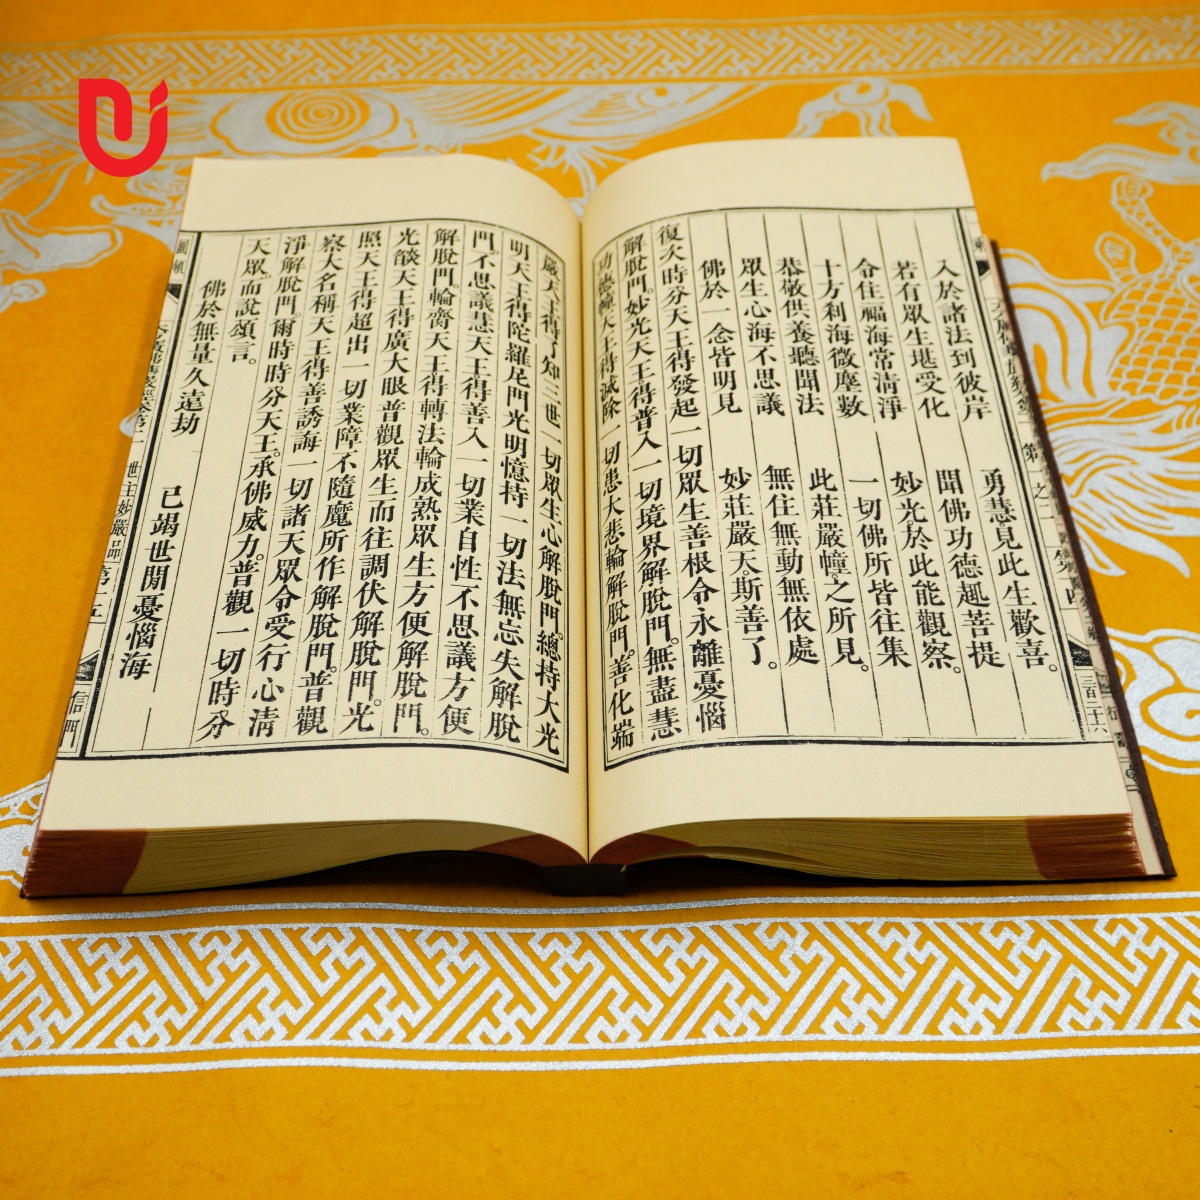 入於諸法到彼岸 勇慧見此生歡喜。
若有眾生堪受化 聞佛功德趣菩提
令住福海常清淨 妙光於此能觀察。
十方剎海微塵數 一切佛所皆往集
恭敬供養聽聞法 此莊嚴幢之所見。
眾生心海不思議 無住無動無依處
佛於一念皆明見 妙莊嚴天。斯善了。
復次時分天王得發起一切眾生善根令永離憂惱
解脫門。妙光天王得普入一切境界解脫門。無盡慧
功德幢天王得滅除一切患大悲輪解脫門。善化端
嚴天王得了知三世一切眾生心解脫門。總持大光
明天王得陀羅尼門光明憶持一切法無忘失解脫
門。不思議慧天王得善入一切業自性不思議方便
解脫門。輪臍天王得轉法輪成熟眾生方便解脫門。
光燄天王得廣大眼普觀眾生而往調伏解脫門。光
照天王得超出一切業障不隨魔所作解脫門。普觀
察大名稱天王得善誘誨一切諸天眾令受行心清
淨解脫門。爾時時分天王。承佛威力。普觀一切時分
天眾。而說頌言。
佛於無量久遠劫 已竭世間憂惱海
世主妙嚴品第